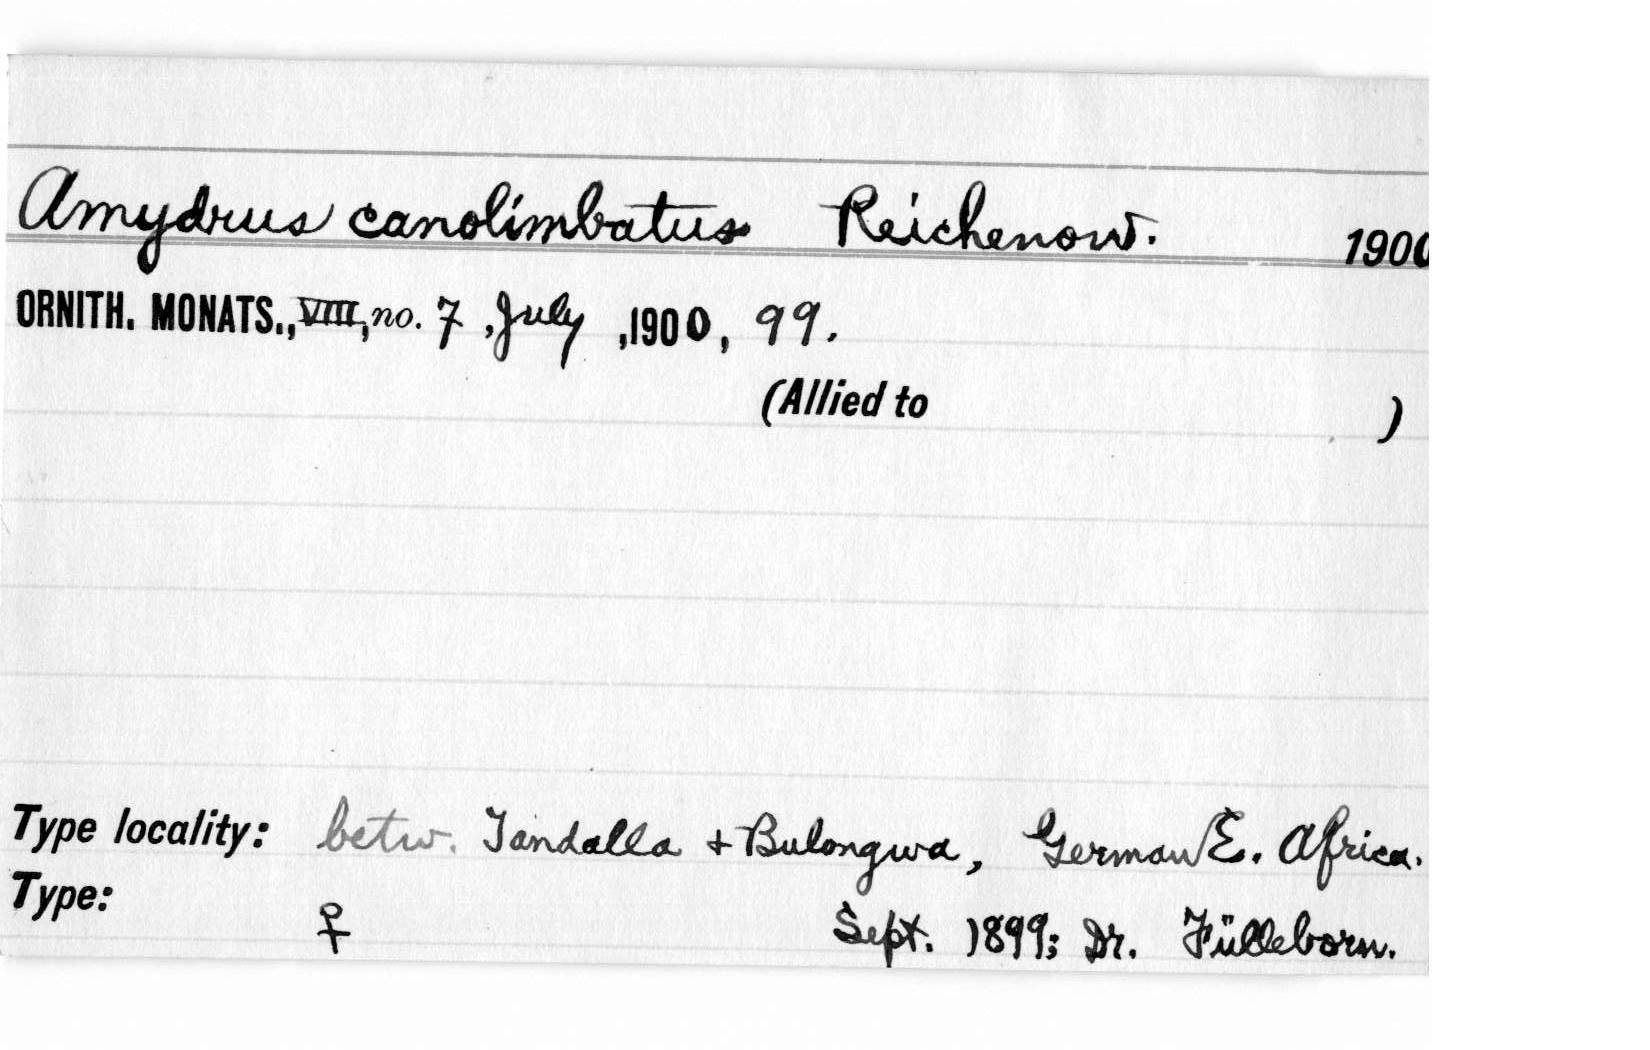 Amydrus canolimbatus Reichenow. 1900
ORNITH. MONATS., VIII, no. 7, July, 1900, 99.
(Allied to )
Type locality: betw. Tandalla + Bulongwa, German E. Africa.
Type: ♀ Sept. 1899; Dr. Fülleborn.